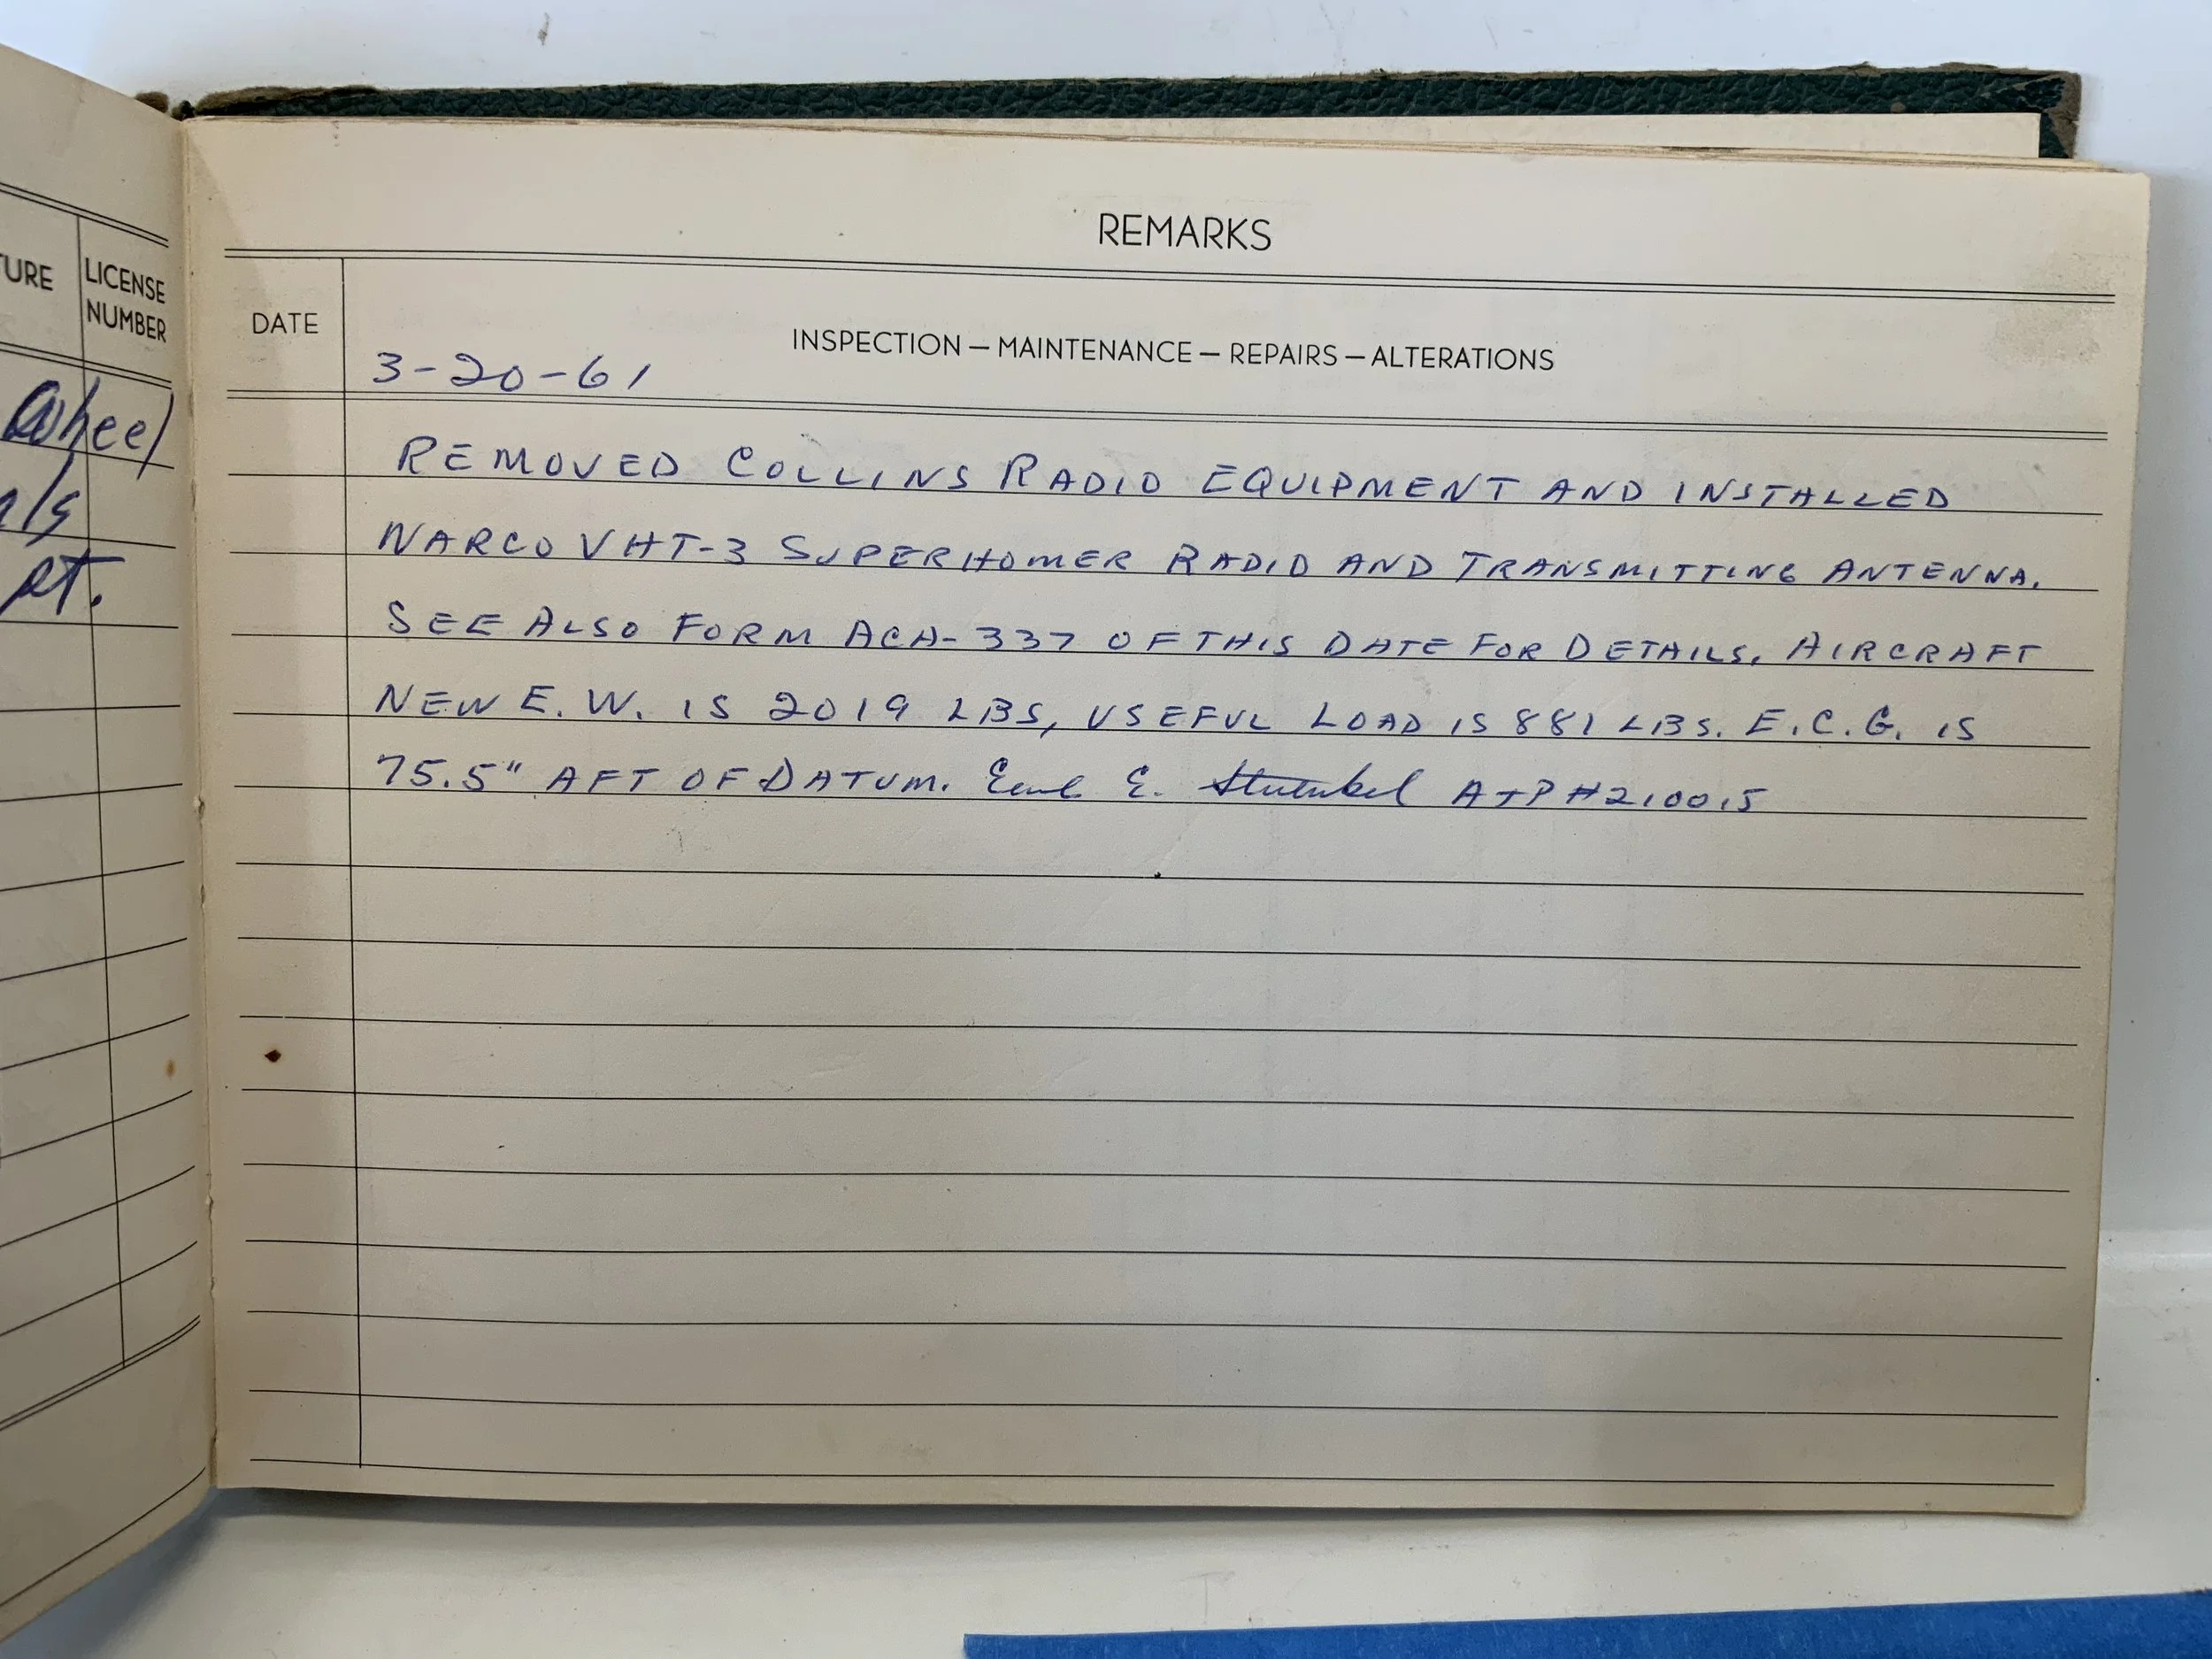 TURE
LICENSE
NUMBER
Wheel
pt.
REMARKS
DATE
INSPECTION — MAINTENANCE — REPAIRS — ALTERATIONS
3-20-61
REMOVED COLLINS RADIO EQUIPMENT AND INSTALLED
NARCO VHT-3 SUPERHOMER RADIO AND TRANSMITTING ANTENNA.
SEE ALSO FORM ACA-337 OF THIS DATE FOR DETAILS. AIRCRAFT
NEW E.W. IS 2019 LBS, USEFUL LOAD IS 881 LBS. E.C.G. IS
75.5" AFT OF DATUM. E. A+P #210015